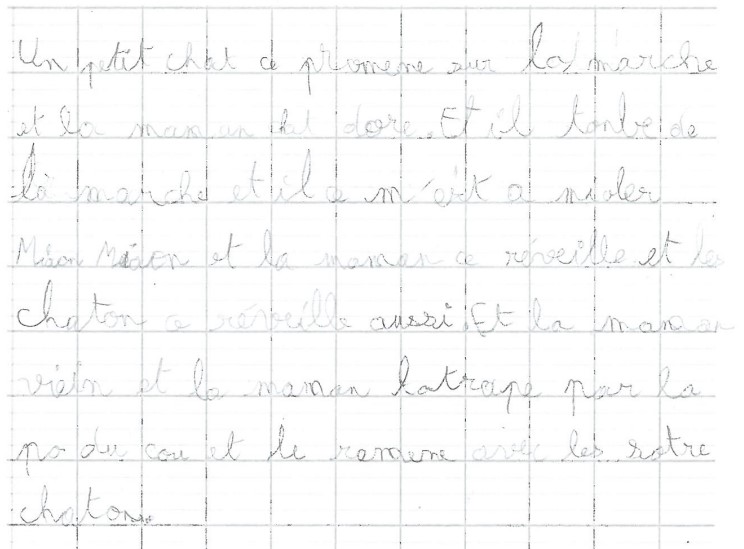 Un petit chat ce promene sur la marche
et la maman chat dore. Et il tonbe de
la marche et il ce m'ait a mioler
Miaon Miaon et la maman ce réveille et les
chaton ce réveille aussi. Et la maman
vien et la maman latrape par la
po du cou et le ramene avec les sotre
chaton.